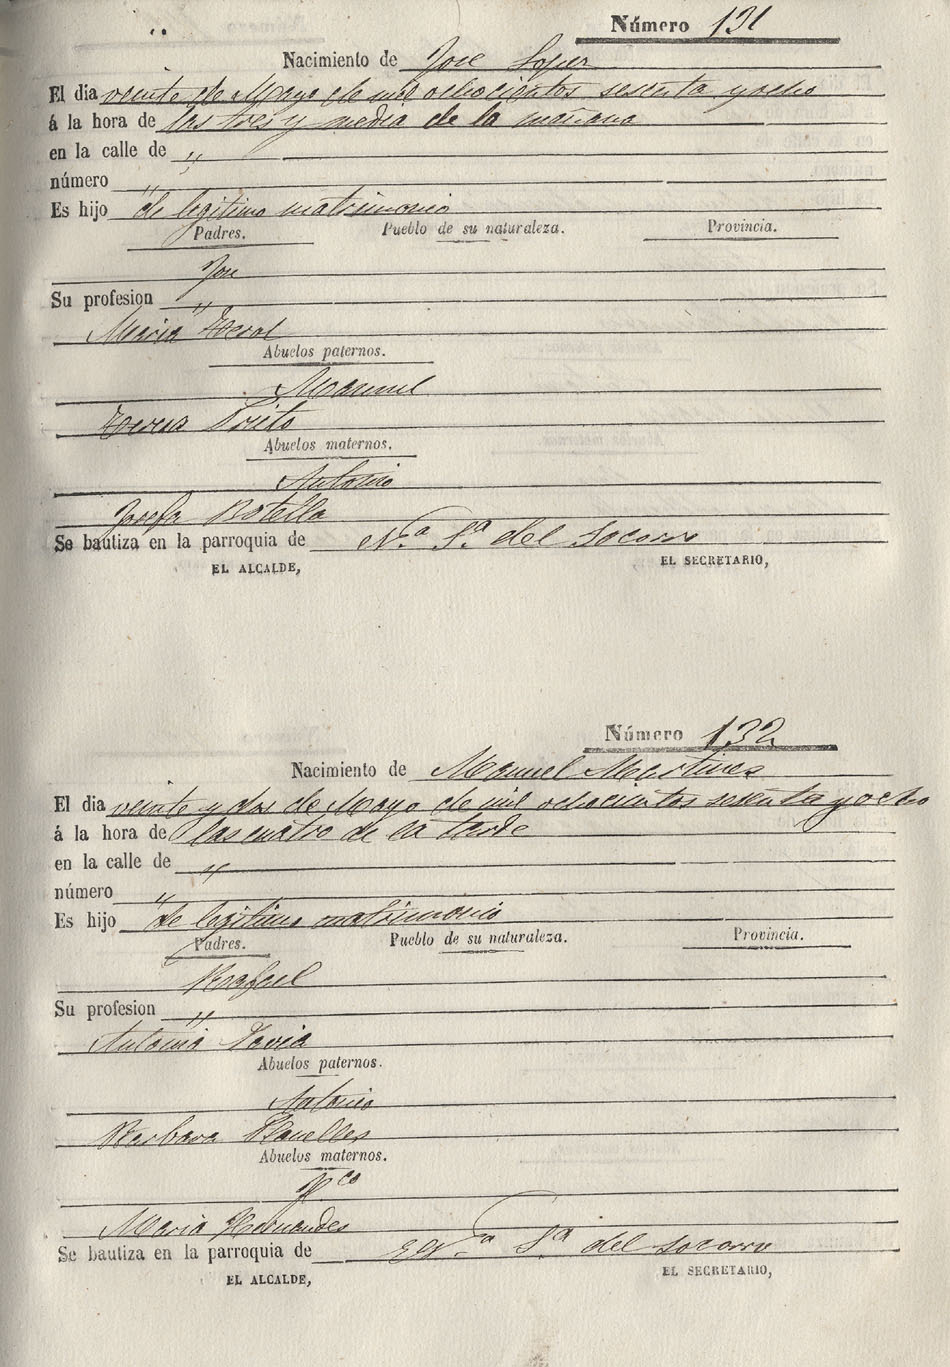 Número 131
Nacimiento de Jose Lopez
El dia veinte de Mayo de mil ochocientos sesenta y ocho
á la hora de las tres y media de la mañana
en la calle de "
número "
Es hijo de legitimo matrimonio
Padres. Pueblo de su naturaleza. Provincia.
Jose
Su profesion "
Maria
Abuelos paternos.
Manuel
Teresa Prieto
Abuelos maternos.
Antonio
Josefa Botella
Se bautiza en la parroquia de N.ª S.ª del Socorro
EL ALCALDE, EL SECRETARIO,
Número 132
Nacimiento de Manuel Martines
El dia veinte y dos de Mayo de mil ochocientos sesenta y ocho
á la hora de las cuatro de la tarde
en la calle de "
número "
Es hijo de legitimo matrimonio
Padres. Pueblo de su naturaleza. Provincia.
Rafael
Su profesion "
Antonia
Abuelos paternos.
Antonio
Barbara Planelles
Abuelos maternos.
Fco
Maria Hernandes
Se bautiza en la parroquia de N.ª S.ª del Socorro
EL ALCALDE, EL SECRETARIO,